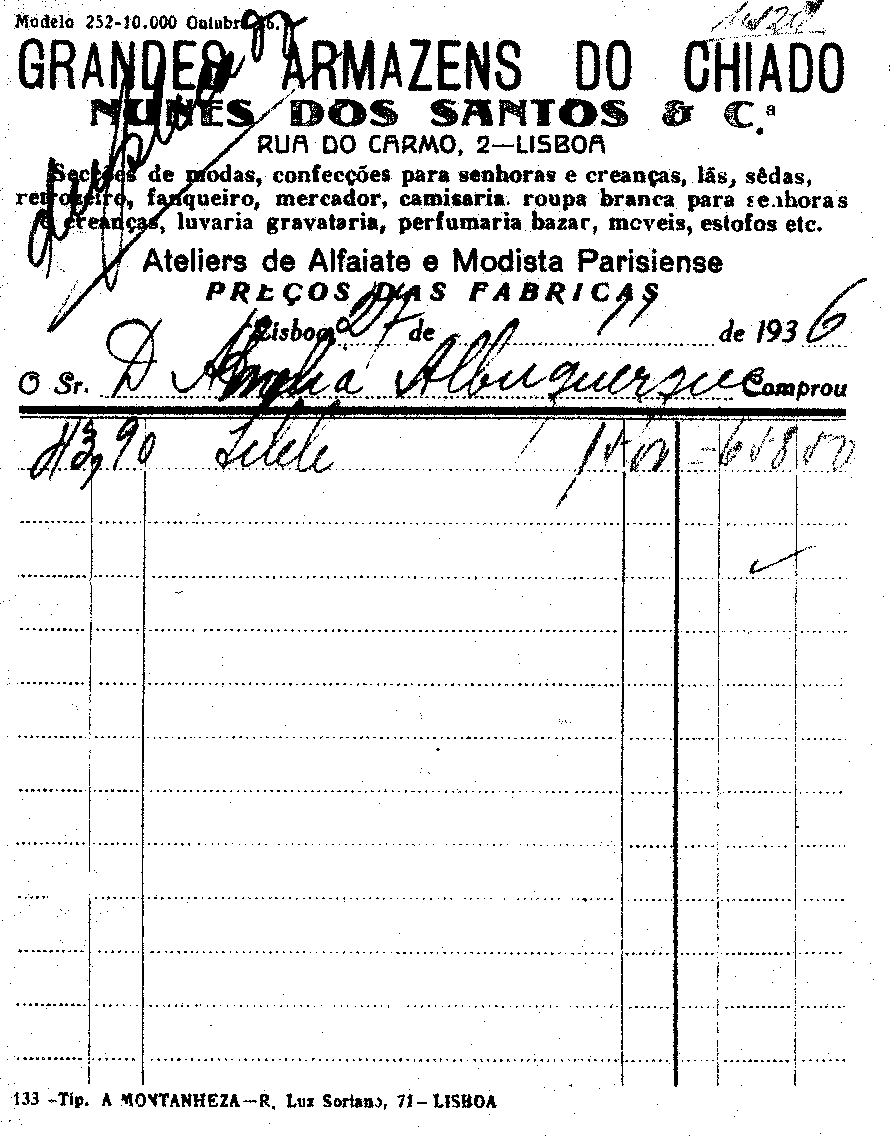 Modelo 252-10.000 Outubro
GRANDES ARMAZENS DO CHIADO
NUNES DOS SANTOS & C.ª
RUA DO CARMO, 2—LISBOA
Secções de modas, confecções para senhoras e creanças, lãs, sêdas,
retrozeiro, fanqueiro, mercador, camisaria. roupa branca para senhoras
e creanças, luvaria gravataria, perfumaria bazar, moveis, estofos etc.
Duplicado
Ateliers de Alfaiate e Modista Parisiense
PREÇOS DAS FABRICAS
Lisboa, 27 de 11 de 1936
O Sr. D Amelia Albuquerque Comprou
90
133 -Tip. A MONTANHEZA—R. Luz Soriano, 71—LISBOA